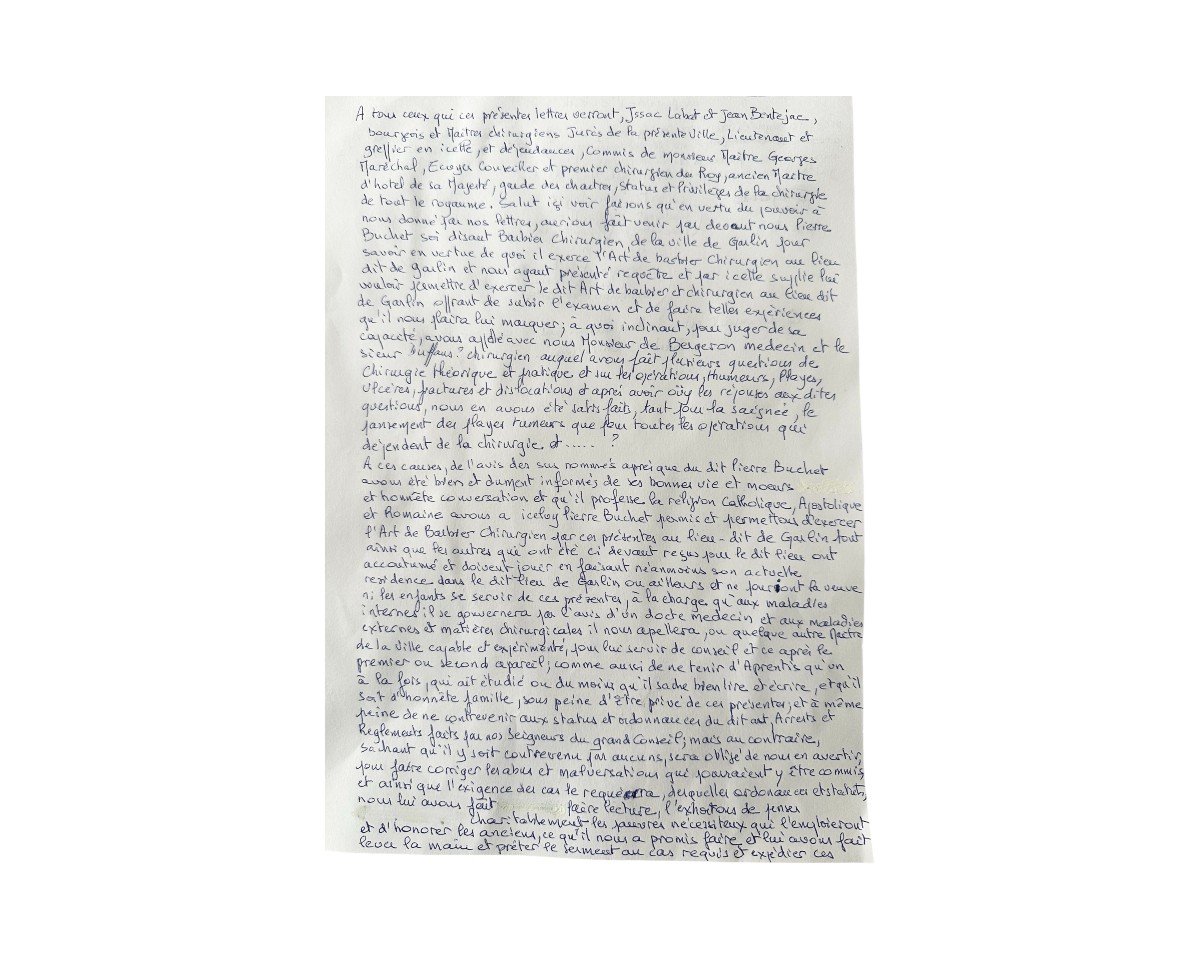 A tous ceux qui ces présentes lettres verront, Issac Labat et Jean Bentejac,
bourgeois et Maitres chirurgiens Jurés de la présente Ville, Lieutenant et
greffier en icelle, et dépendances, Commis de monsieur Maître Georges
Maréchal, Ecuyer Conseiller et premier chirurgien du Roy, ancien Maitre
d'hotel de sa Majesté, garde des chartres, Status et Privilèges de la chirurgie
de tout le royaume. Salut içi voir faisons qu'en vertu du pouvoir à
nous donné par nos lettres, aurions fait venir par devant nous Pierre
Buchet soi disant Barbier Chirurgien de la ville de Garlin pour
savoir en vertue de quoi il exerce l'Art de barbier Chirurgien au lieu
dit de Garlin et nous ayant présenté requête et par icelle suplie lui
vouloir permettre d'exercer le dit Art de barbier et chirurgien au lieu dit
de Garlin offrant de subir l'examen et de faire telles expériences
qu'il nous plaira lui marquer ; à quoi inclinant, pour juger de sa
capacité, avons apellé avec nous Monsieur de Bergeron medecin et le
sieur Buffans ? chirurgien auquel avons fait plusieurs questions de
Chirurgie théorique et pratique et sur les opérations, thumeurs, Playes,
Ulcères, fractures et dislocations et après avoir oüy les réponses aux dites
questions, nous en avons été satisfaits, tant pour la saignée, le
pansement des playes tumeurs que pour toutes les opérations qui
dépendent de la chirurgie et ..... ?
A ces causes, de l'avis des sus nommés après que du dit Pierre Buchet
avons été bien et dument informés de ses bonnes vie et moeurs
et honnête conversation et qu'il professe la religion Catholique, Apostolique
et Romaine avons a iceluy Pierre Buchet permis et permettons d'exercer
l'Art de Barbier Chirurgien par ces présentes au lieu-dit de Garlin tout
ainsi que les autres qui ont été ci devant reçus pour le dit lieu ont
accoutumé et doivent jouir en faisant néanmoins son actuelle
residence dans le dit lieu de Garlin ou ailleurs et ne pourront sa veuve
ni les enfants se servir de ces présentes, à la charge qu'aux maladies
internes il se gouvernera par l'avis d'un docte medecin et aux maladies
externes et matières chirurgicales il nous apellera, ou quelque autre Maitre
de la Ville capable et expérimenté, pour lui servir de conseil et ce après le
premier ou second apareil ; comme aussi de ne tenir d'Aprentis qu'un
à la fois, qui ait étudié ou du moins qu'il sache bien lire et écrire, et qu'il
soit d'honnête famille, sous peine d'être privé de ces présentes, et à même
peine de ne contrevenir aux status et ordonnances du dit art, Arrests et
Règlements faits par nos Seigneurs du grand Conseil ; mais au contraire,
sachant qu'il y soit contrevenu par aucuns, sera obligé de nous en avertir,
pour faire corriger les abus et malversations qui pouraient y être commis
et ainsi que l'exigence des cas le requèrra, desquelles ordonances et statuts,
nous lui avons fait faire lecture, l'exhortons de penser
Charitablement les pauvres nécessiteux qui l'emploieront
et d'honorer les anciens, ce qu'il nous a promis faire, et lui avons fait
lever la main et prêter le serment au cas requis et expédier ces